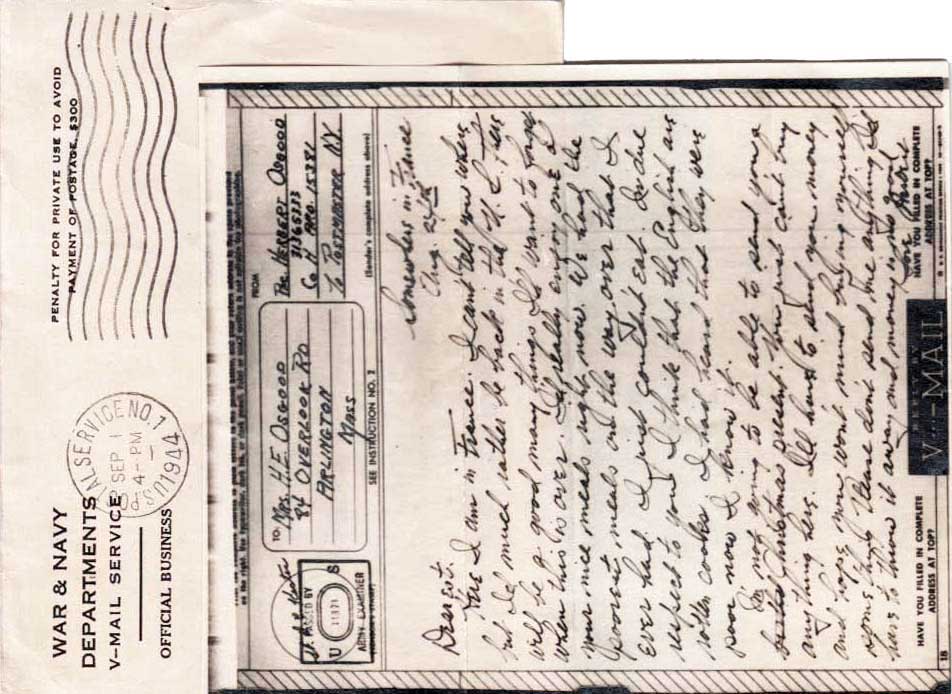 WAR & NAVY
DEPARTMENTS
V-MAIL SERVICE
OFFICIAL BUSINESS
ALSERVICE NO. 1
SEP 1
4-PM
1944
U.S.
PENALTY FOR PRIVATE USE TO AVOID
PAYMENT OF POSTAGE, $300
PASSED BY
U S
ARMY EXAMINER
TO
Mrs. H.E. OSGOOD
84 OVERLOOK RD
ARLINGTON
Mass
SEE INSTRUCTION NO. 2
FROM
HERBERT OSGOOD
31365333
Co M APO 15381
To POSTMASTER N.Y.
(Sender's complete address above)
Somewhere in France
Aug. 24th
Dearest:
Yes I am in France. I can't tell you where
but I'd much rather be back in the U.S. There
will be a good many things I'll want to forget
when this is over. I'd really enjoy one of
your nice meals right now. We had the
poorest meals on the way over that I
ever had. I just couldn't eat. In due
respect to you I think that the English are
rotten cooks. I had heard that they were
poor now I know it.
I'm not going to be able to send you a
Christmas present. You just can't buy
anything here. I'll have to send you money
and hope you won't mind buying yourself
something. Please don't send me anything I'd
have to throw it away and money is no good
Love
HAVE YOU FILLED IN COMPLETE
ADDRESS AT TOP?
V···—MAIL
HAVE YOU FILLED IN COMPLETE
ADDRESS AT TOP?